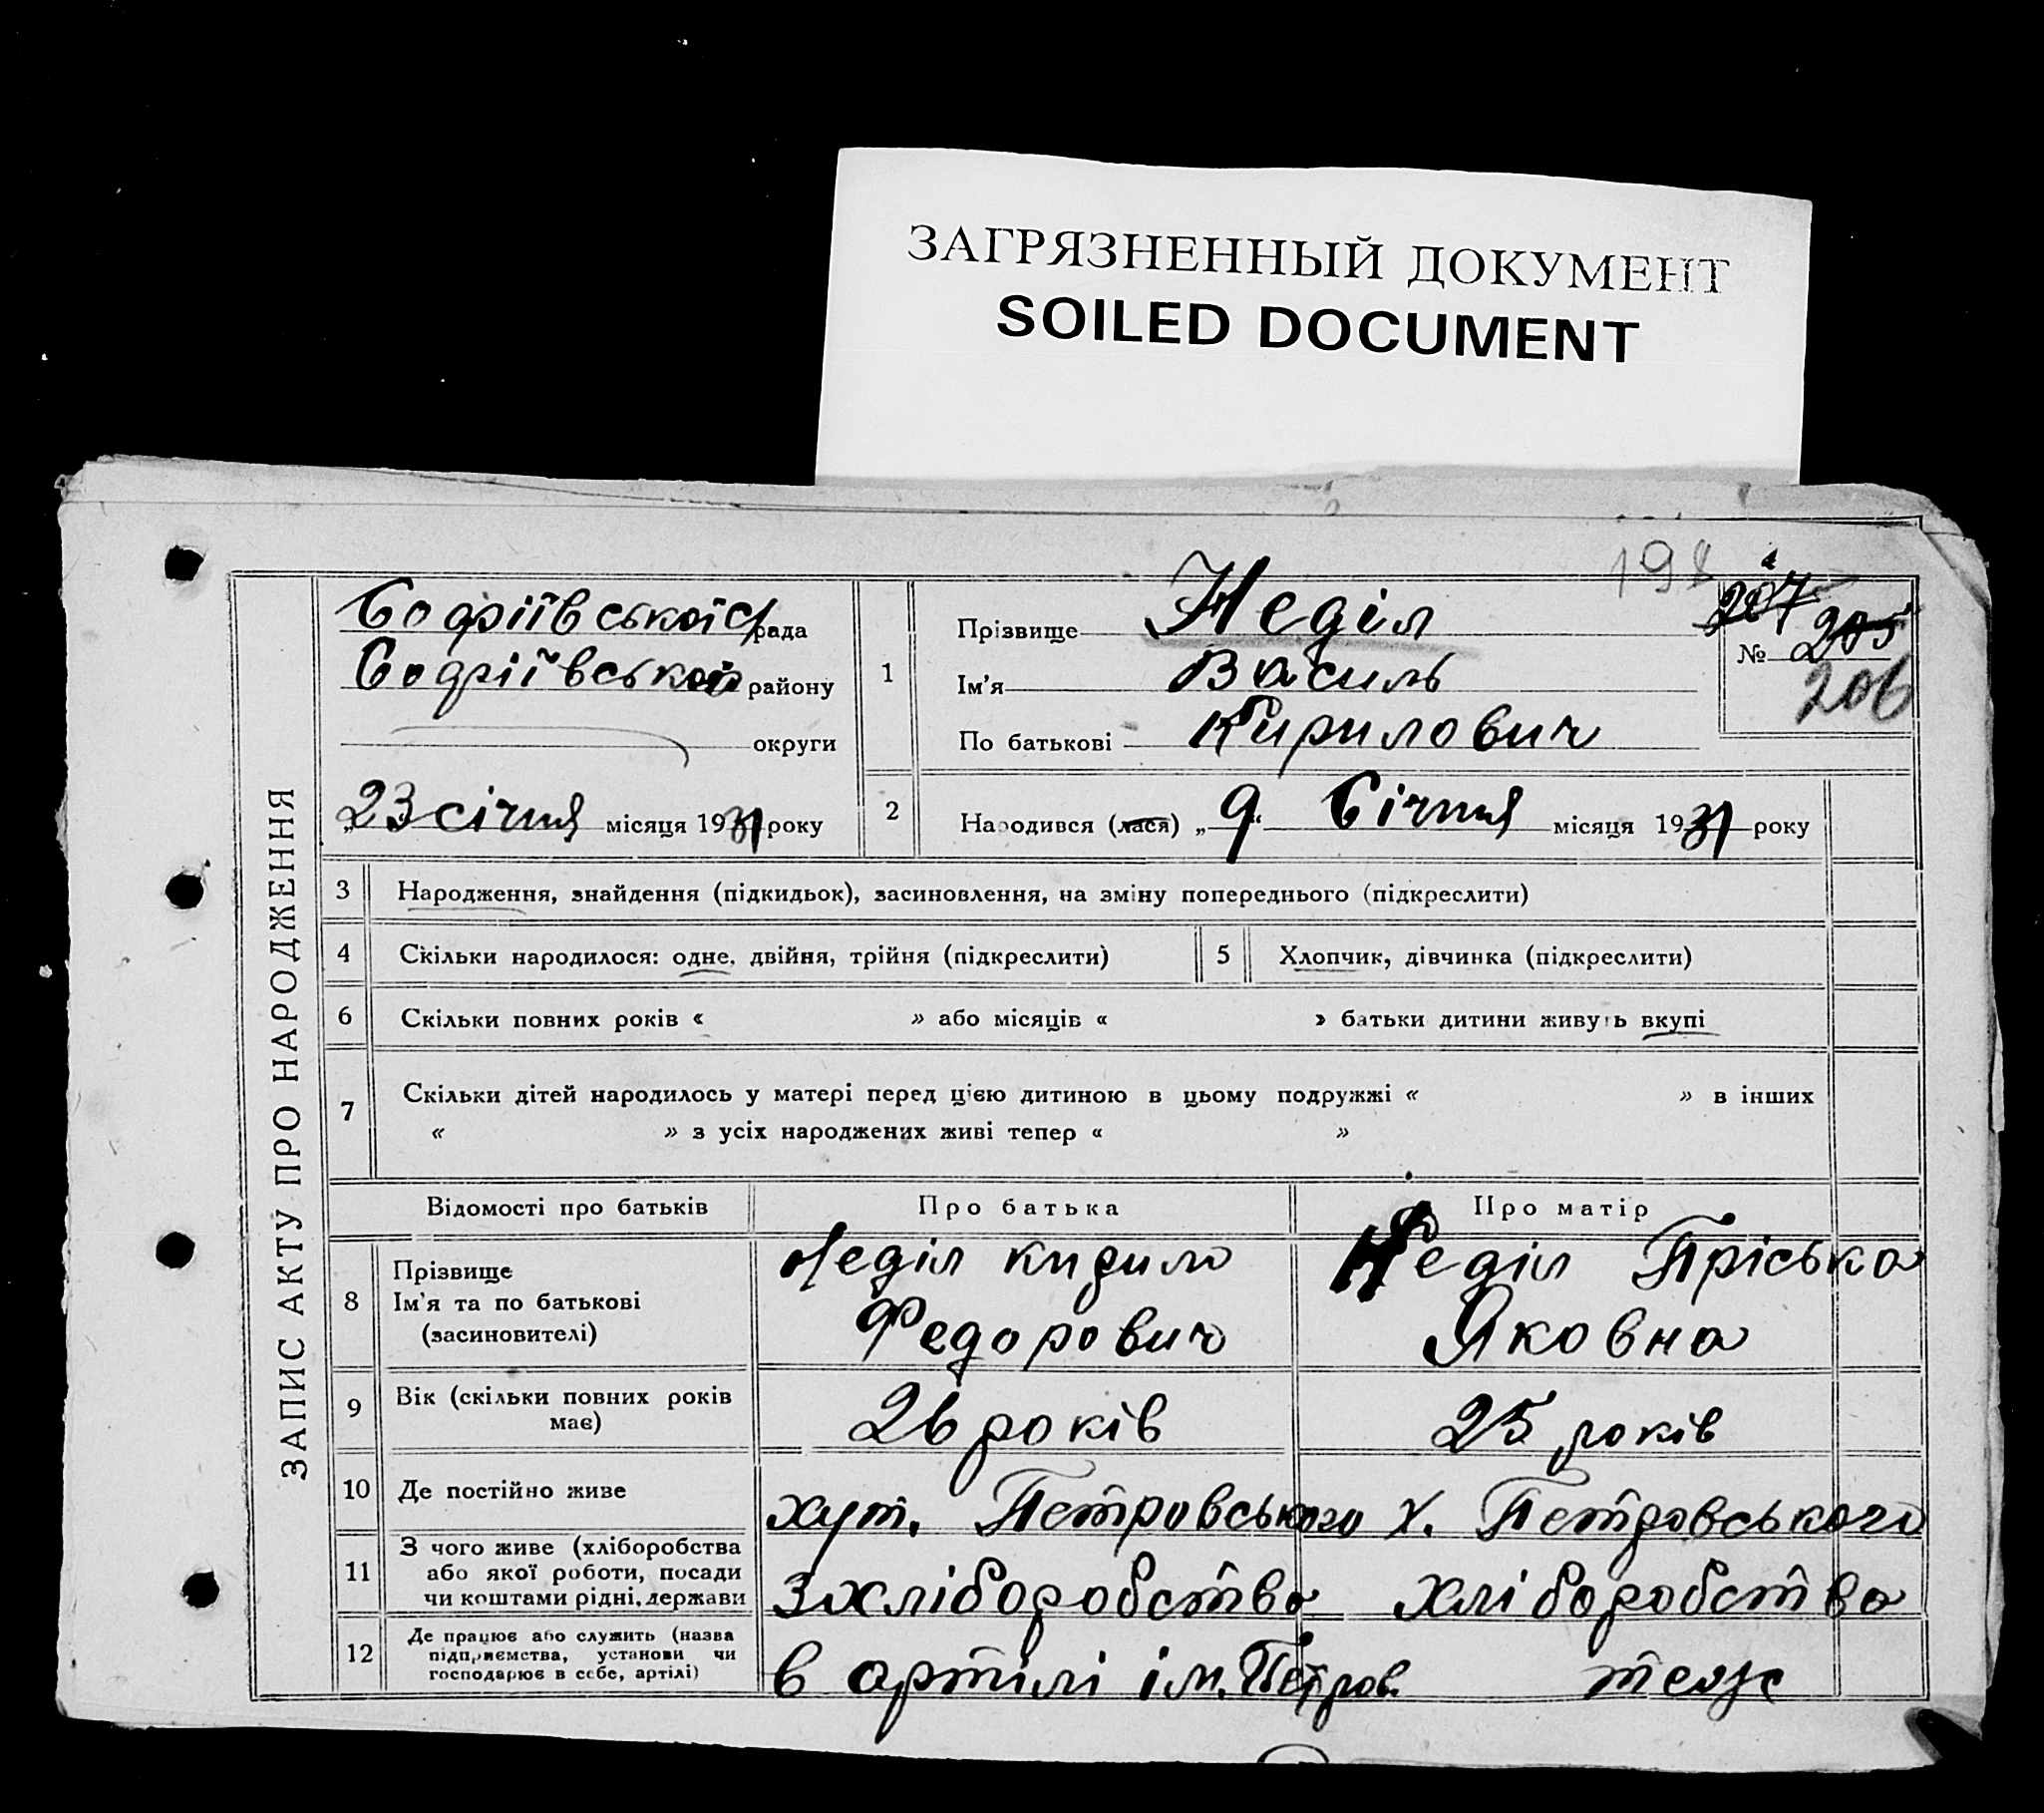 ЗАГРЯЗНЕННЫЙ ДОКУМЕНТ
SOILED DOCUMENT
198
ЗАПИС АКТУ ПРО НАРОДЖЕННЯ
Софіївської с/рада
Софіївського району
округи
„23 січня місяця 1931 року
1
Прізвище Неділ
Ім'я Василь
По батькові Кирилович
207
№ 205
206
2 Народився (лася) „9“ Січня місяця 1931 року
3 Народження, знайдення (підкидьок), засиновлення, на зміну попереднього (підкреслити)
4 Скільки народилося: одне, двійня, трійня (підкреслити) 5 Хлопчик, дівчинка (підкреслити)
6 Скільки повних років « » або місяців « » батьки дитини живуть вкупі
7 Скільки дітей народилось у матері перед цією дитиною в цьому подружжі « » в інших
« » з усіх народжених живі тепер « »
Відомості про батьків Про батька Про матір
8 Прізвище
Ім'я та по батькові
(засиновителі)
Неділ Кирило
Федорович
Неділ Пріська
Яковна
9 Вік (скільки повних років
має)
26 років 25 років
10 Де постійно живе хут. Петровського х. Петровського
11 З чого живе (хліборобства
або якої роботи, посади
чи коштами рідні, держави
З хліборобства хліборобства
12 Де працює або служить (назва
підприємства, установи чи
господарює в себе, артілі)
в артілі ім. Петров. теж